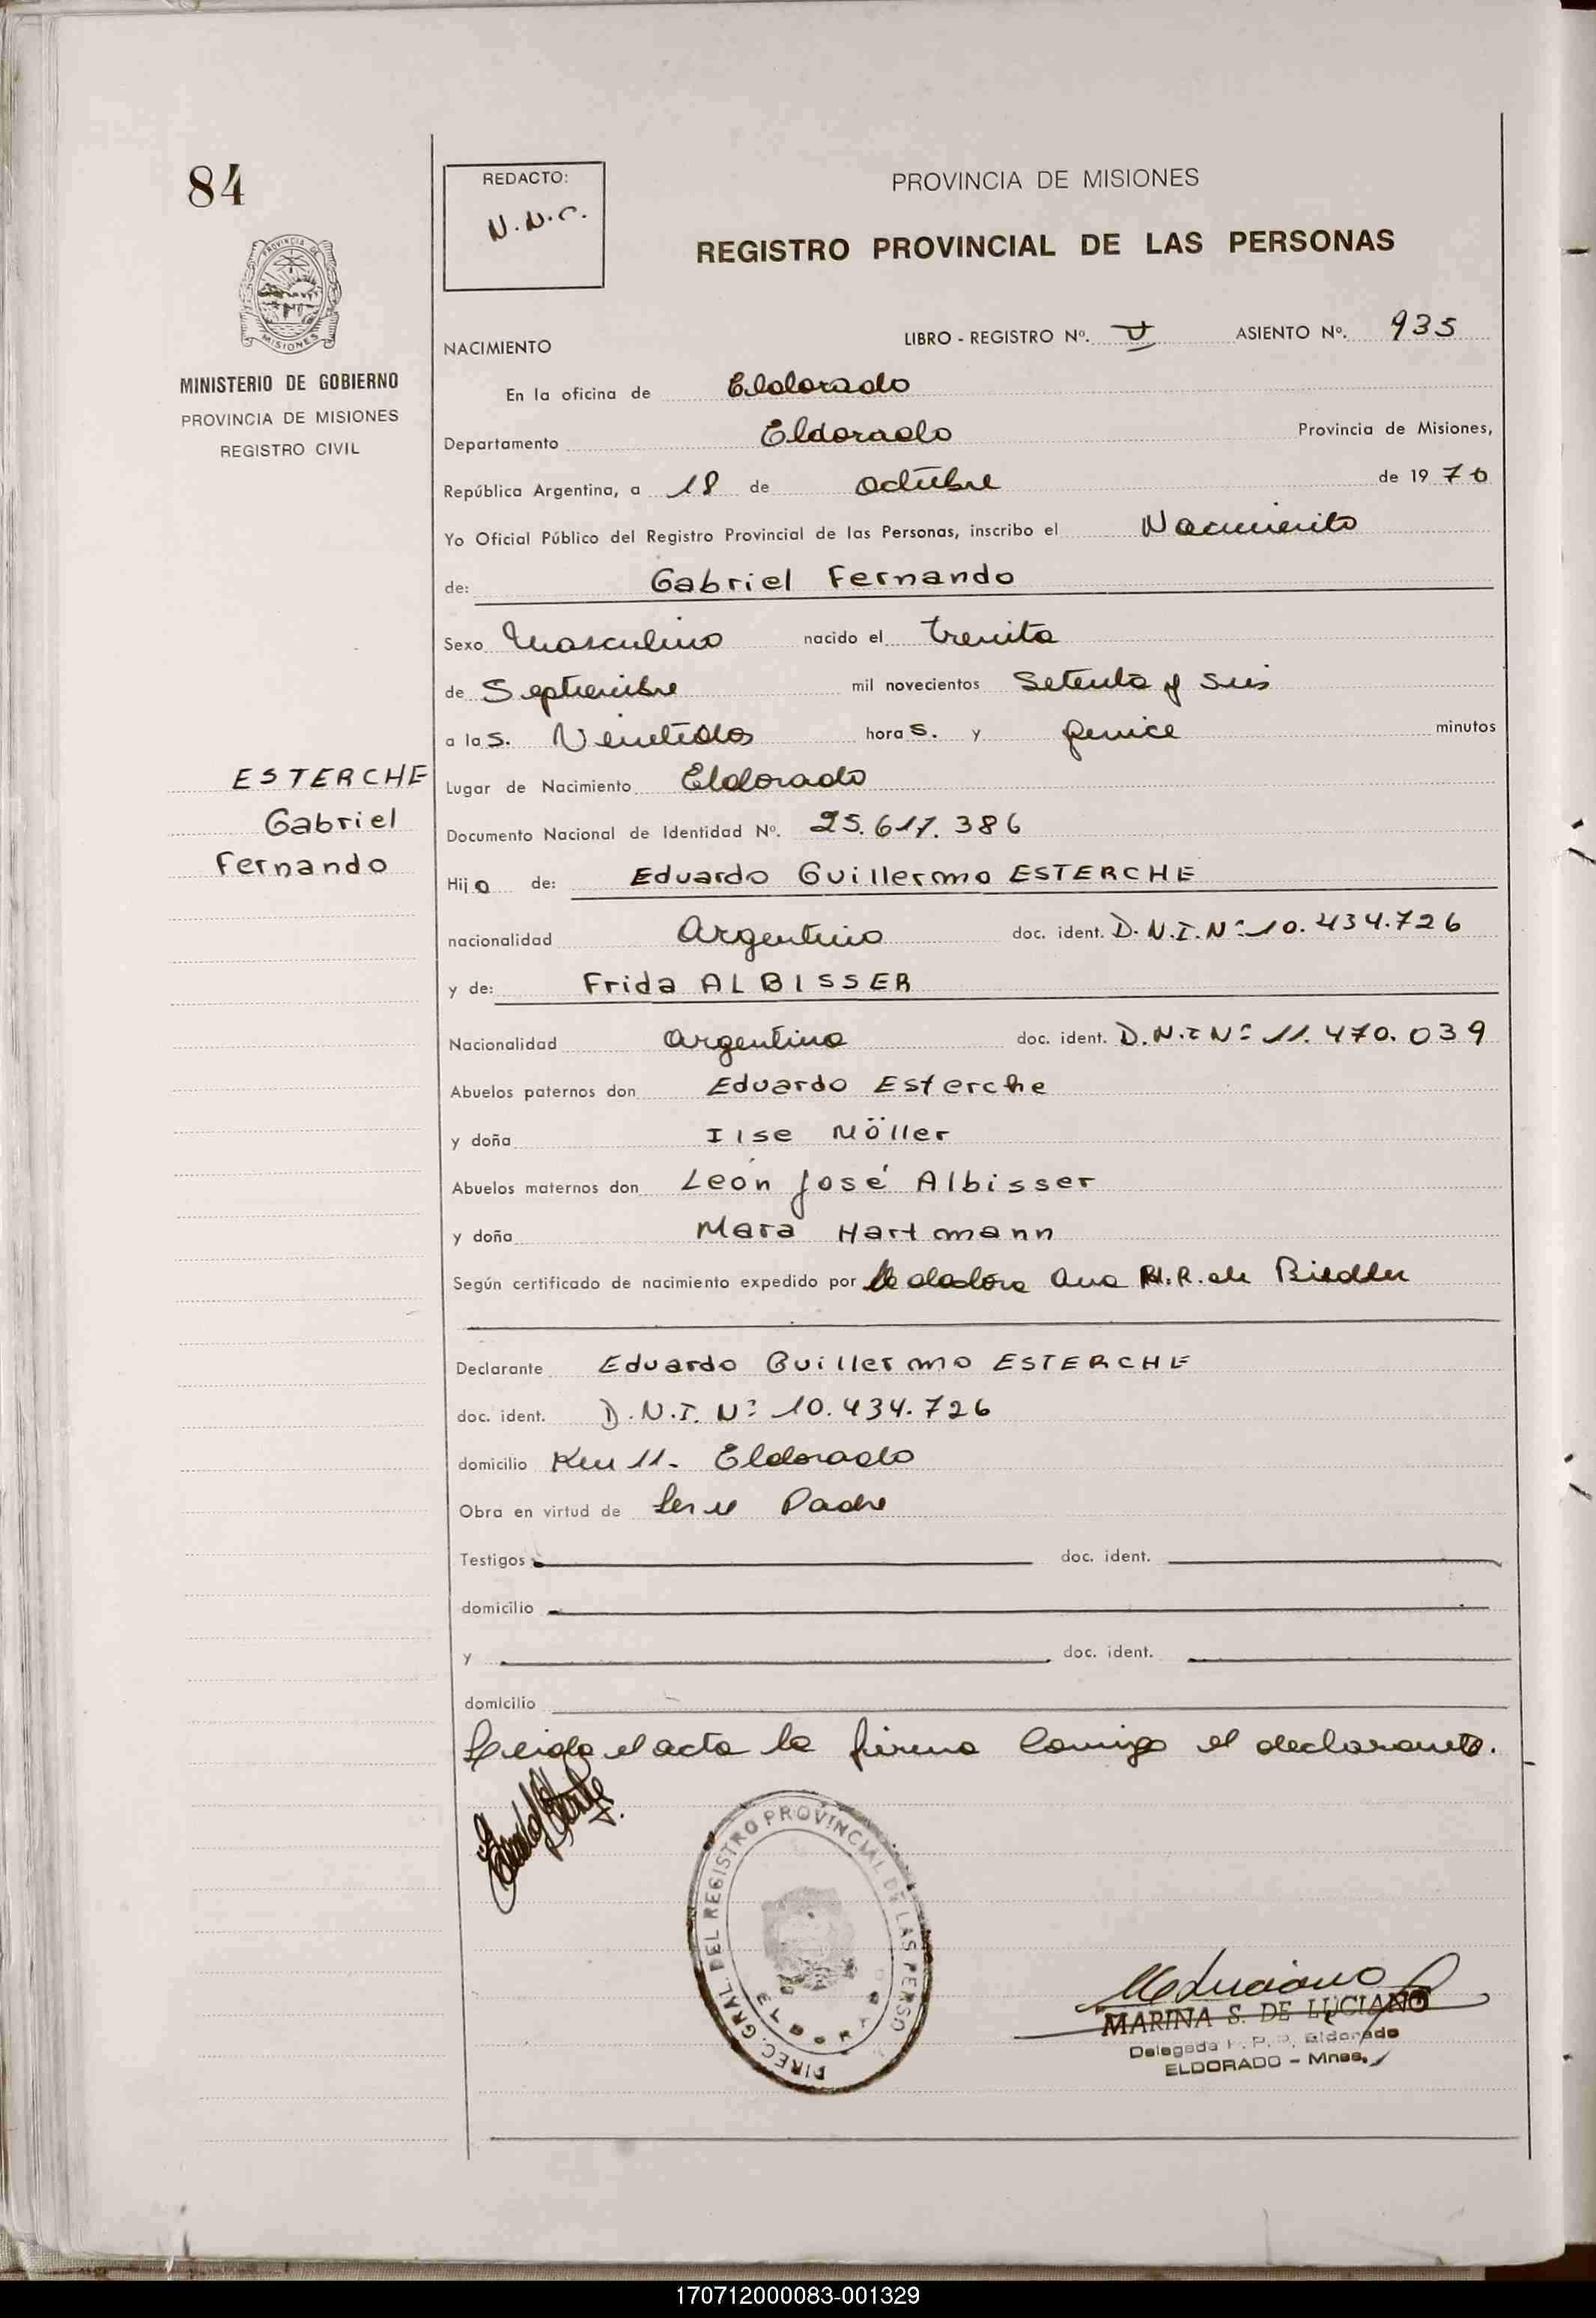 84
PROVINCIA DE MISIONES
MINISTERIO DE GOBIERNO
PROVINCIA DE MISIONES
REGISTRO CIVIL
REDACTO:
N.N.C.
PROVINCIA DE MISIONES
REGISTRO PROVINCIAL DE LAS PERSONAS
NACIMIENTO LIBRO - REGISTRO Nº. V ASIENTO Nº. 935
En la oficina de Eldorado
Departamento Eldorado Provincia de Misiones,
República Argentina, a 18 de octubre de 19 76
Yo Oficial Público del Registro Provincial de las Personas, inscribo el Nacimiento
de: Gabriel Fernando
Sexo Masculino nacido el treinta
de Septiembre mil novecientos Setenta y seis
a las. Veintidos horas. y quince minutos
ESTERCHE
Gabriel
Fernando
Lugar de Nacimiento Eldorado
Documento Nacional de Identidad Nº. 25.617.386
Hijo de: Eduardo Guillermo ESTERCHE
nacionalidad Argentino doc. ident. D.N.I.Nº 10.434.726
y de: Frida ALBISSER
Nacionalidad Argentina doc. ident. D.N.I Nº 11.470.039
Abuelos paternos don Eduardo Esterche
y doña Ilse Möller
Abuelos maternos don León José Albisser
y doña Mara Hartmann
Según certificado de nacimiento expedido por la doctora Ana H.R. de Biedler
Declarante Eduardo Guillermo ESTERCHE
doc. ident. D.N.I. Nº 10.434.726
domicilio Km 11- Eldorado
Obra en virtud de Ser el Padre
Testigos doc. ident.
domicilio
y doc. ident.
domicilio
Leida el acta la firma Comigo el declarante.
DIREC. GRAL. DEL REGISTRO PROVINCIAL DE LAS PERSO
ELDORADO
MLuciano
MARINA S. DE LUCIANO
Delegada R. P. P. Eldorado
ELDORADO - Mnes.
170712000083-001329